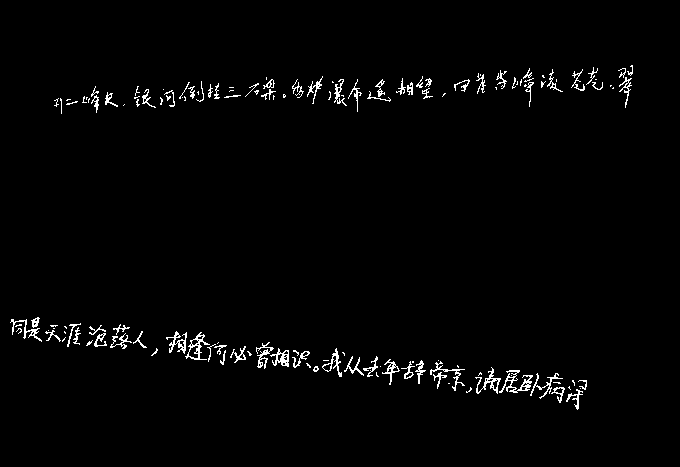 开二峰长,银河倒挂三石梁。香炉瀑布遥相望,回崖沓嶂凌苍苍。翠
同是天涯沦落人,相逢何必曾相识。我从去年辞帝京,谪居卧病浔